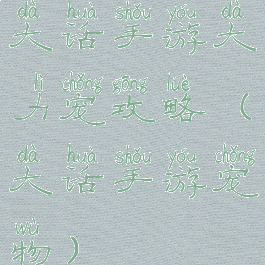 dà huà shǒu yóu dà
大话手游大
lì chǒng gōng lüè
力宠攻略（
dà huà shǒu yóu chǒng
大话手游宠
wù
物）